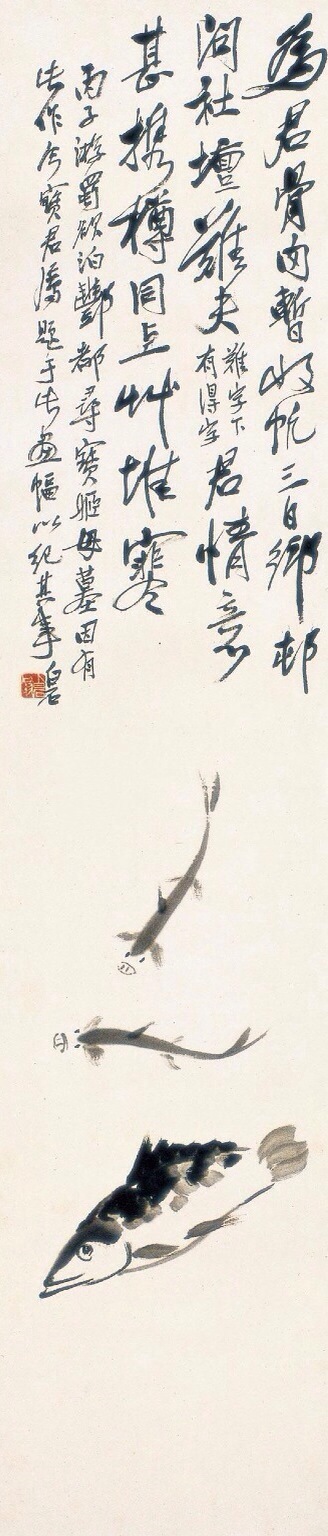 為君骨肉暫收帆三日鄉村
問社壇難夫
難字下
有得字
君情意
甚携樽同上艸堆寒
丙子游蜀欲泊酆都尋寶姬母墓因有
此作今寶君屬題于此畫幅以紀其事白石